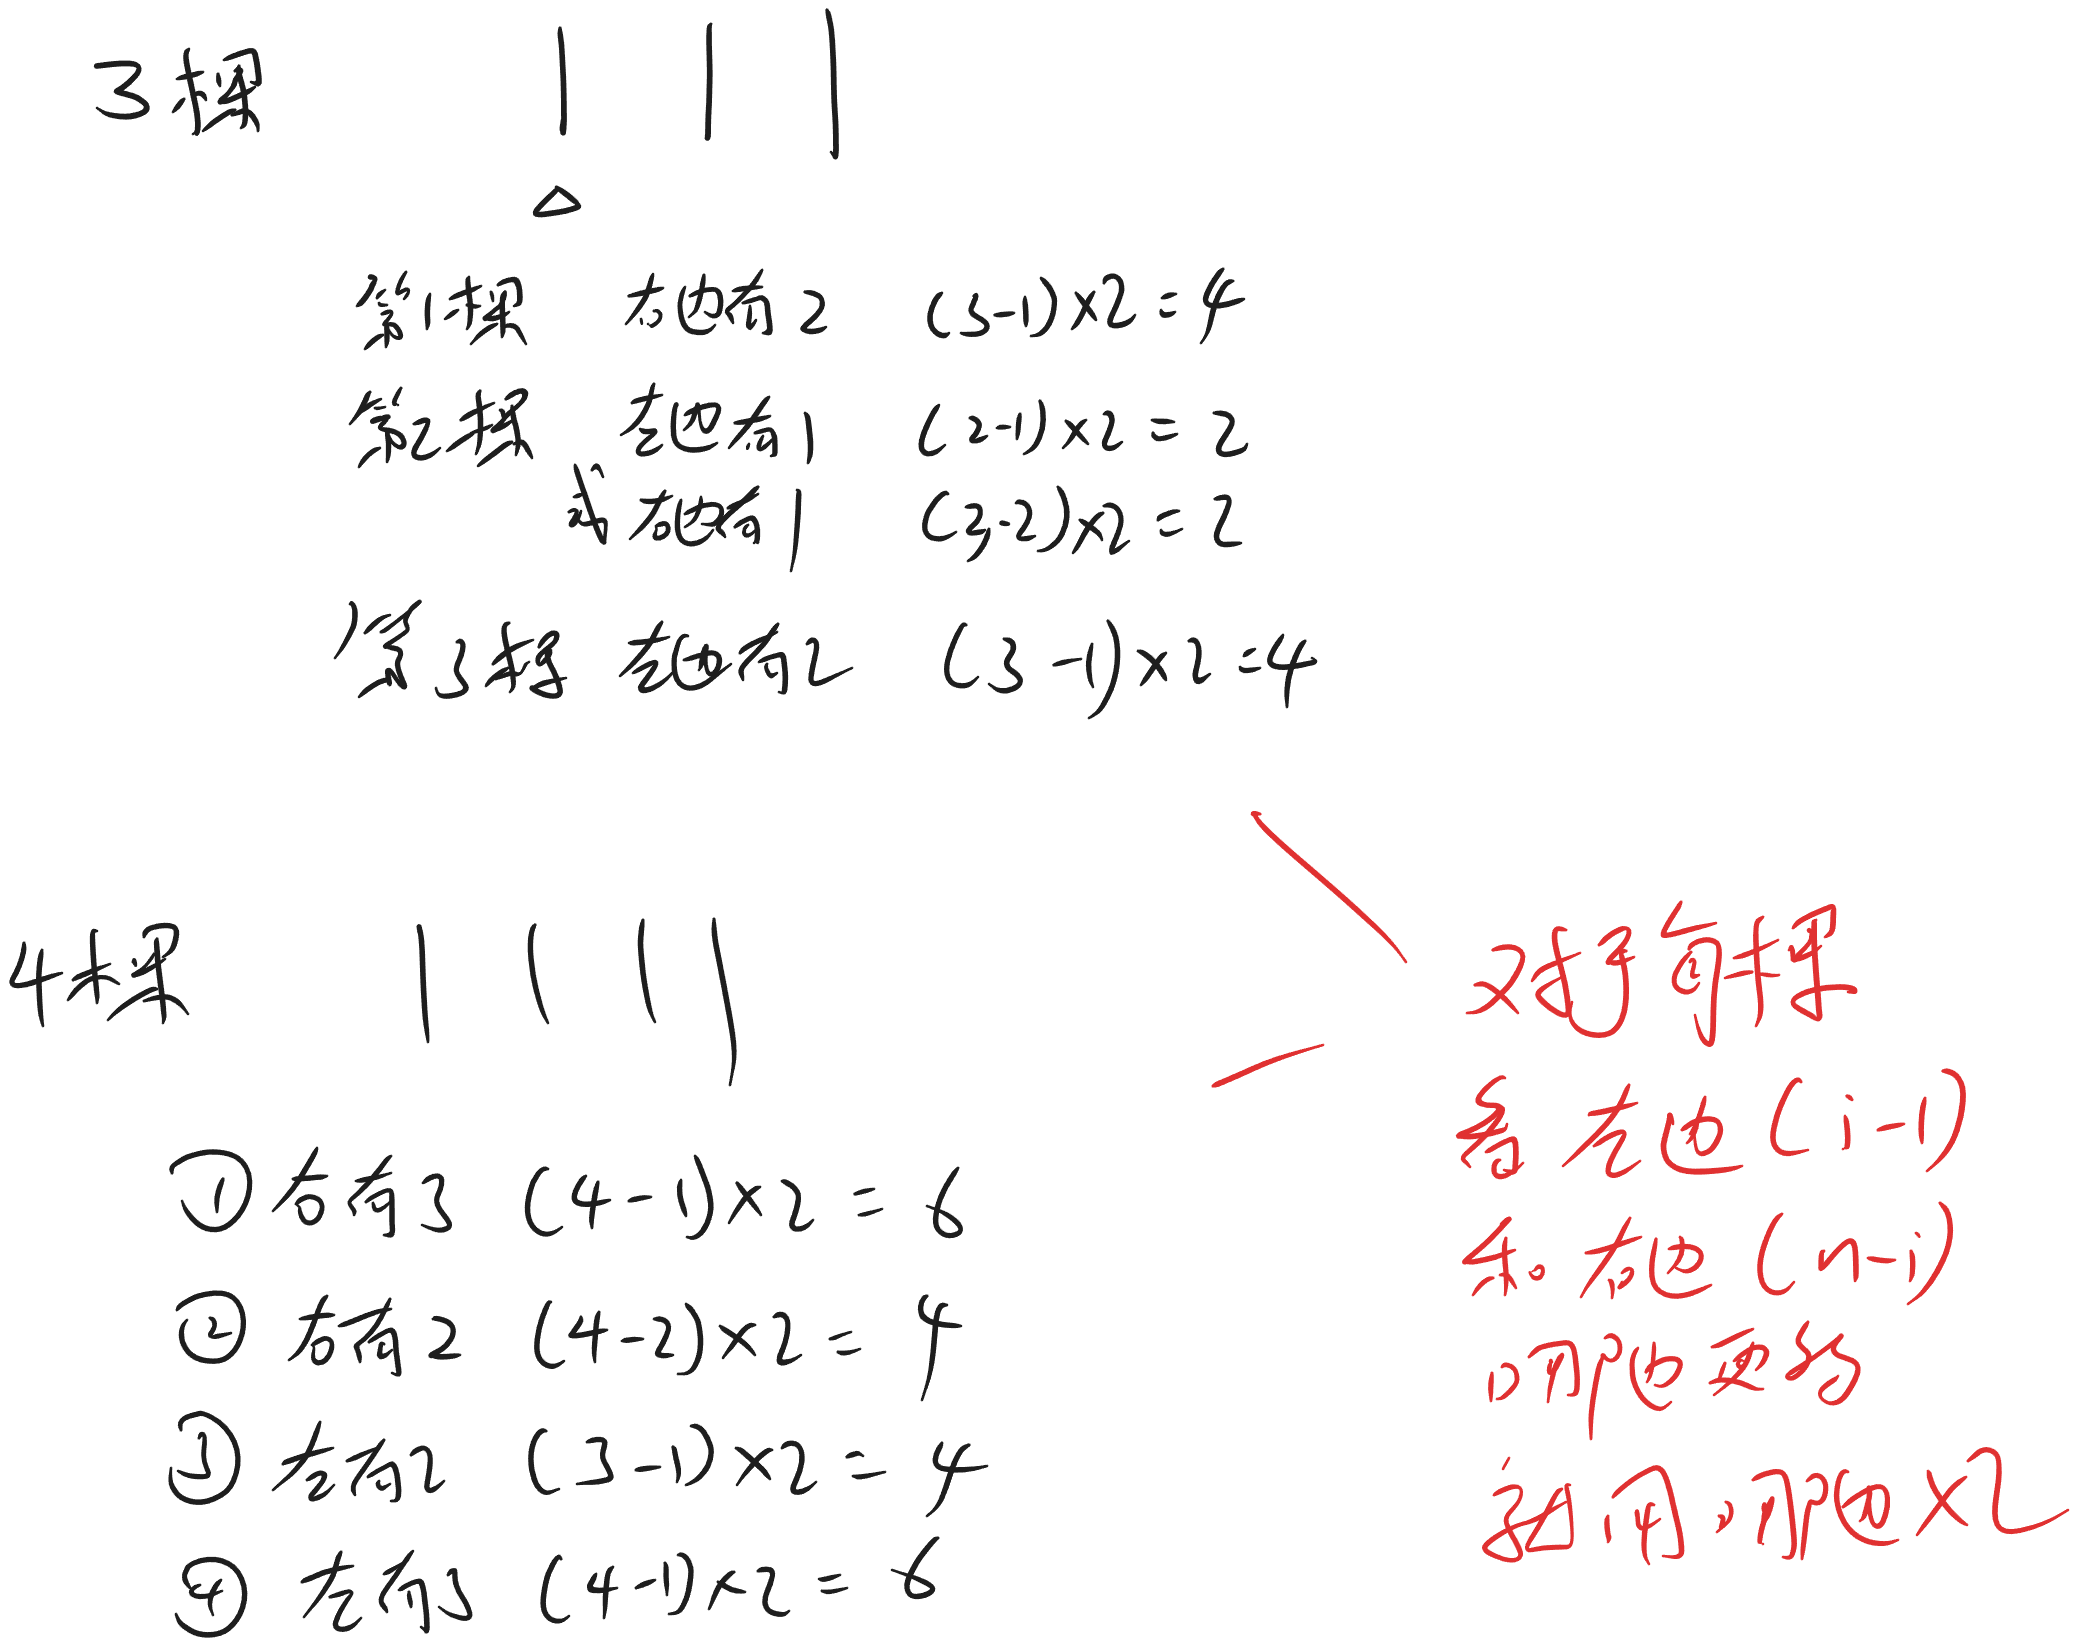 3棵
第1棵 右边有2 (3-1)×2=4
第2棵 左边有1 (2-1)×2=2
或右边有1 (3-2)×2=2
第3棵 左边有2 (3-1)×2=4
4棵
① 右有3 (4-1)×2=6
② 右有2 (4-2)×2=4
③ 左有2 (3-1)×2=4
④ 左有3 (4-1)×2=6
对于每棵
看左边(i-1)
和右边(n-i)
哪边更多
就用哪边×2